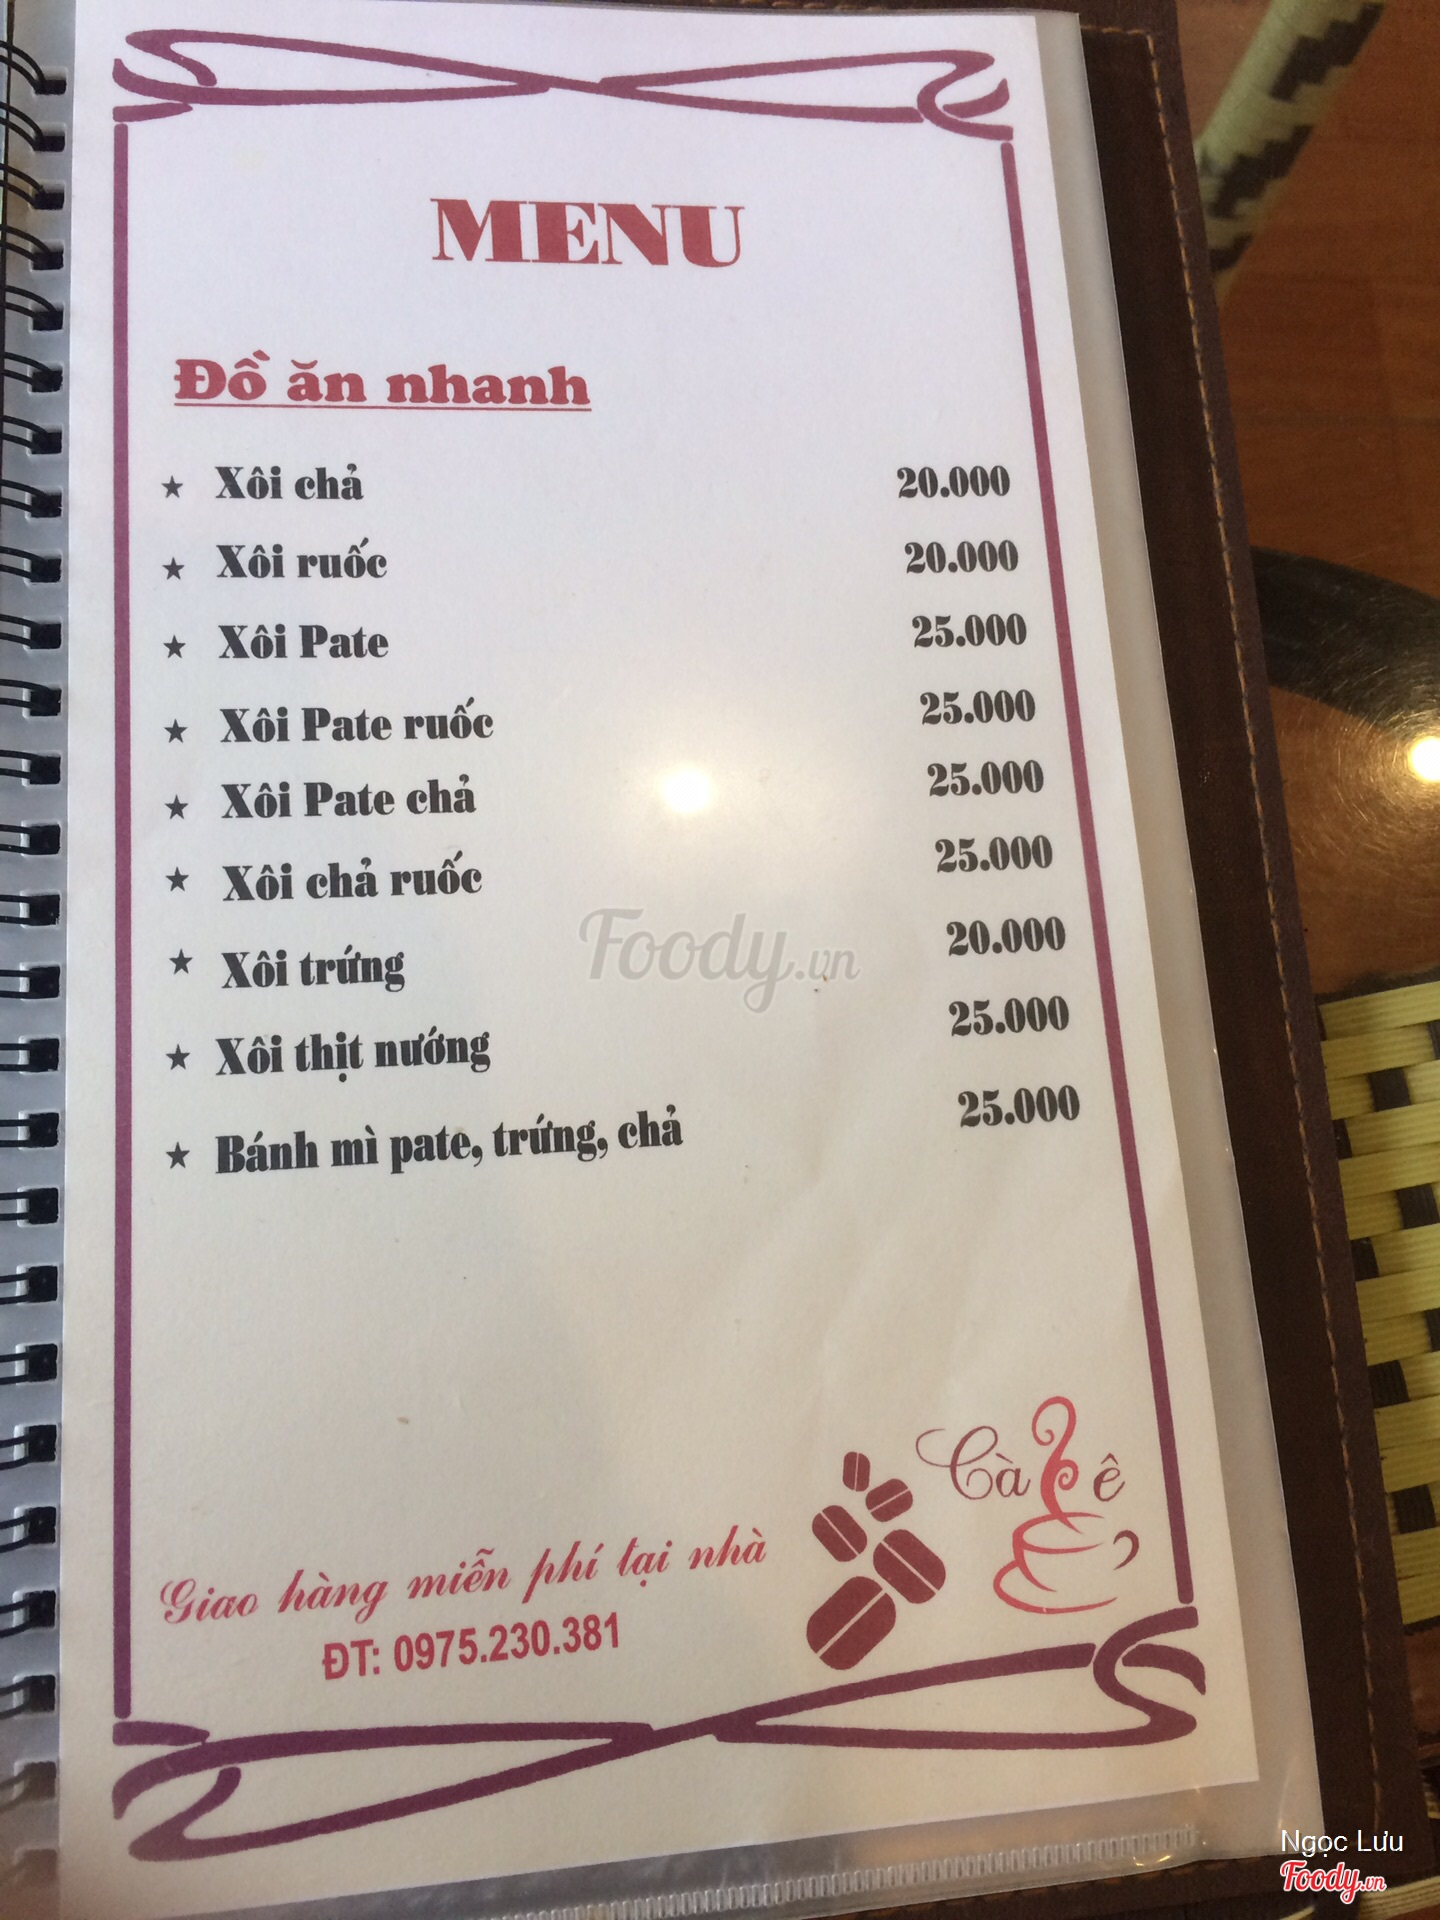 MENU
Đồ ăn nhanh
★ Xôi chả 20.000
★ Xôi ruốc 20.000
★ Xôi Pate 25.000
★ Xôi Pate ruốc 25.000
★ Xôi Pate chả 25.000
★ Xôi chả ruốc 25.000
★ Xôi trứng 20.000
★ Xôi thịt nướng 25.000
★ Bánh mì pate, trứng, chả 25.000
Foody.vn
Cà fê
Giao hàng miễn phí tại nhà
ĐT: 0975.230.381
Ngọc Lưu
Foody.vn